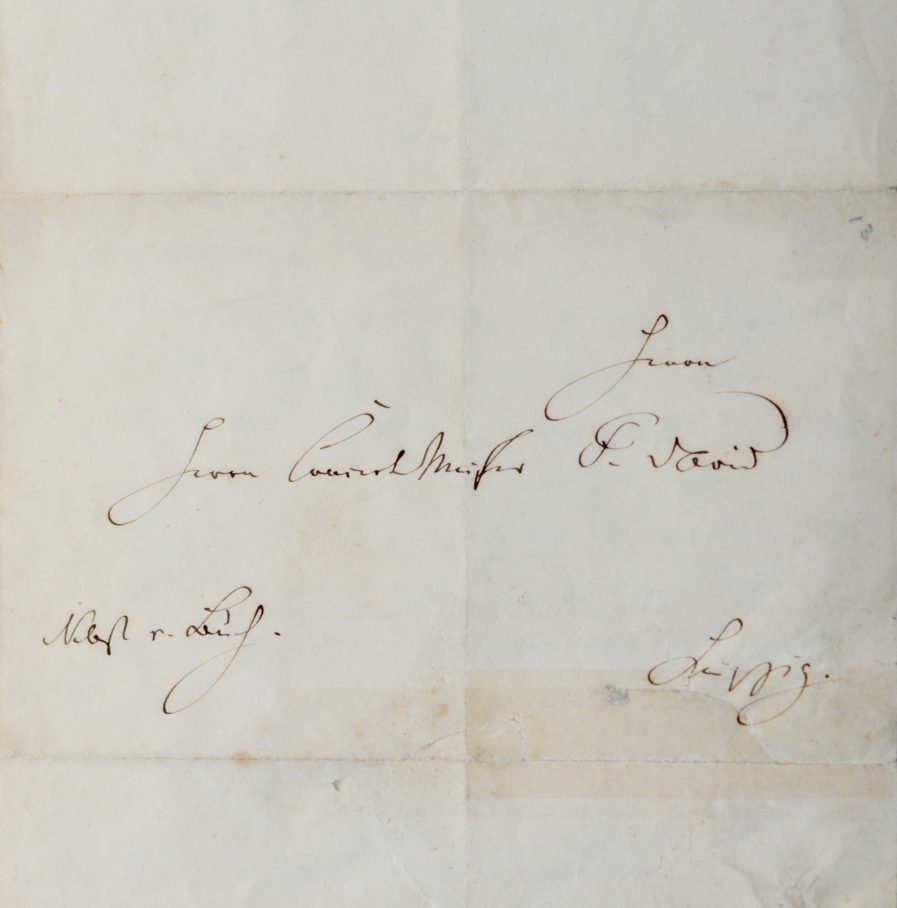 Herrn
Herrn Concert Meister F. David
Nebst e. Buch.
Leipzig.